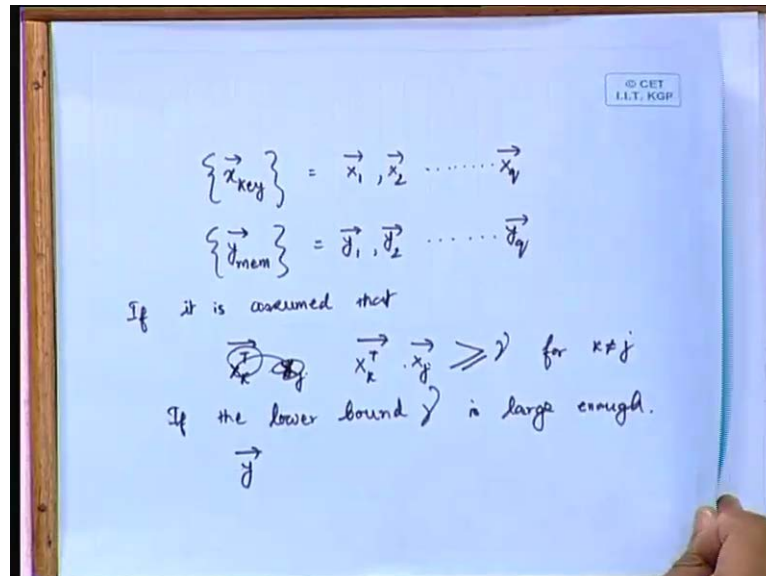 © CET
I.I.T. KGP
{x⃗_key} = x⃗_1, x⃗_2 ........ x⃗_q
{y⃗_mem} = y⃗_1, y⃗_2 ...... y⃗_q
If it is assumed that
x⃗_k^T · x⃗_j ≥ γ for k ≠ j
If the lower bound γ is large enough.
y⃗